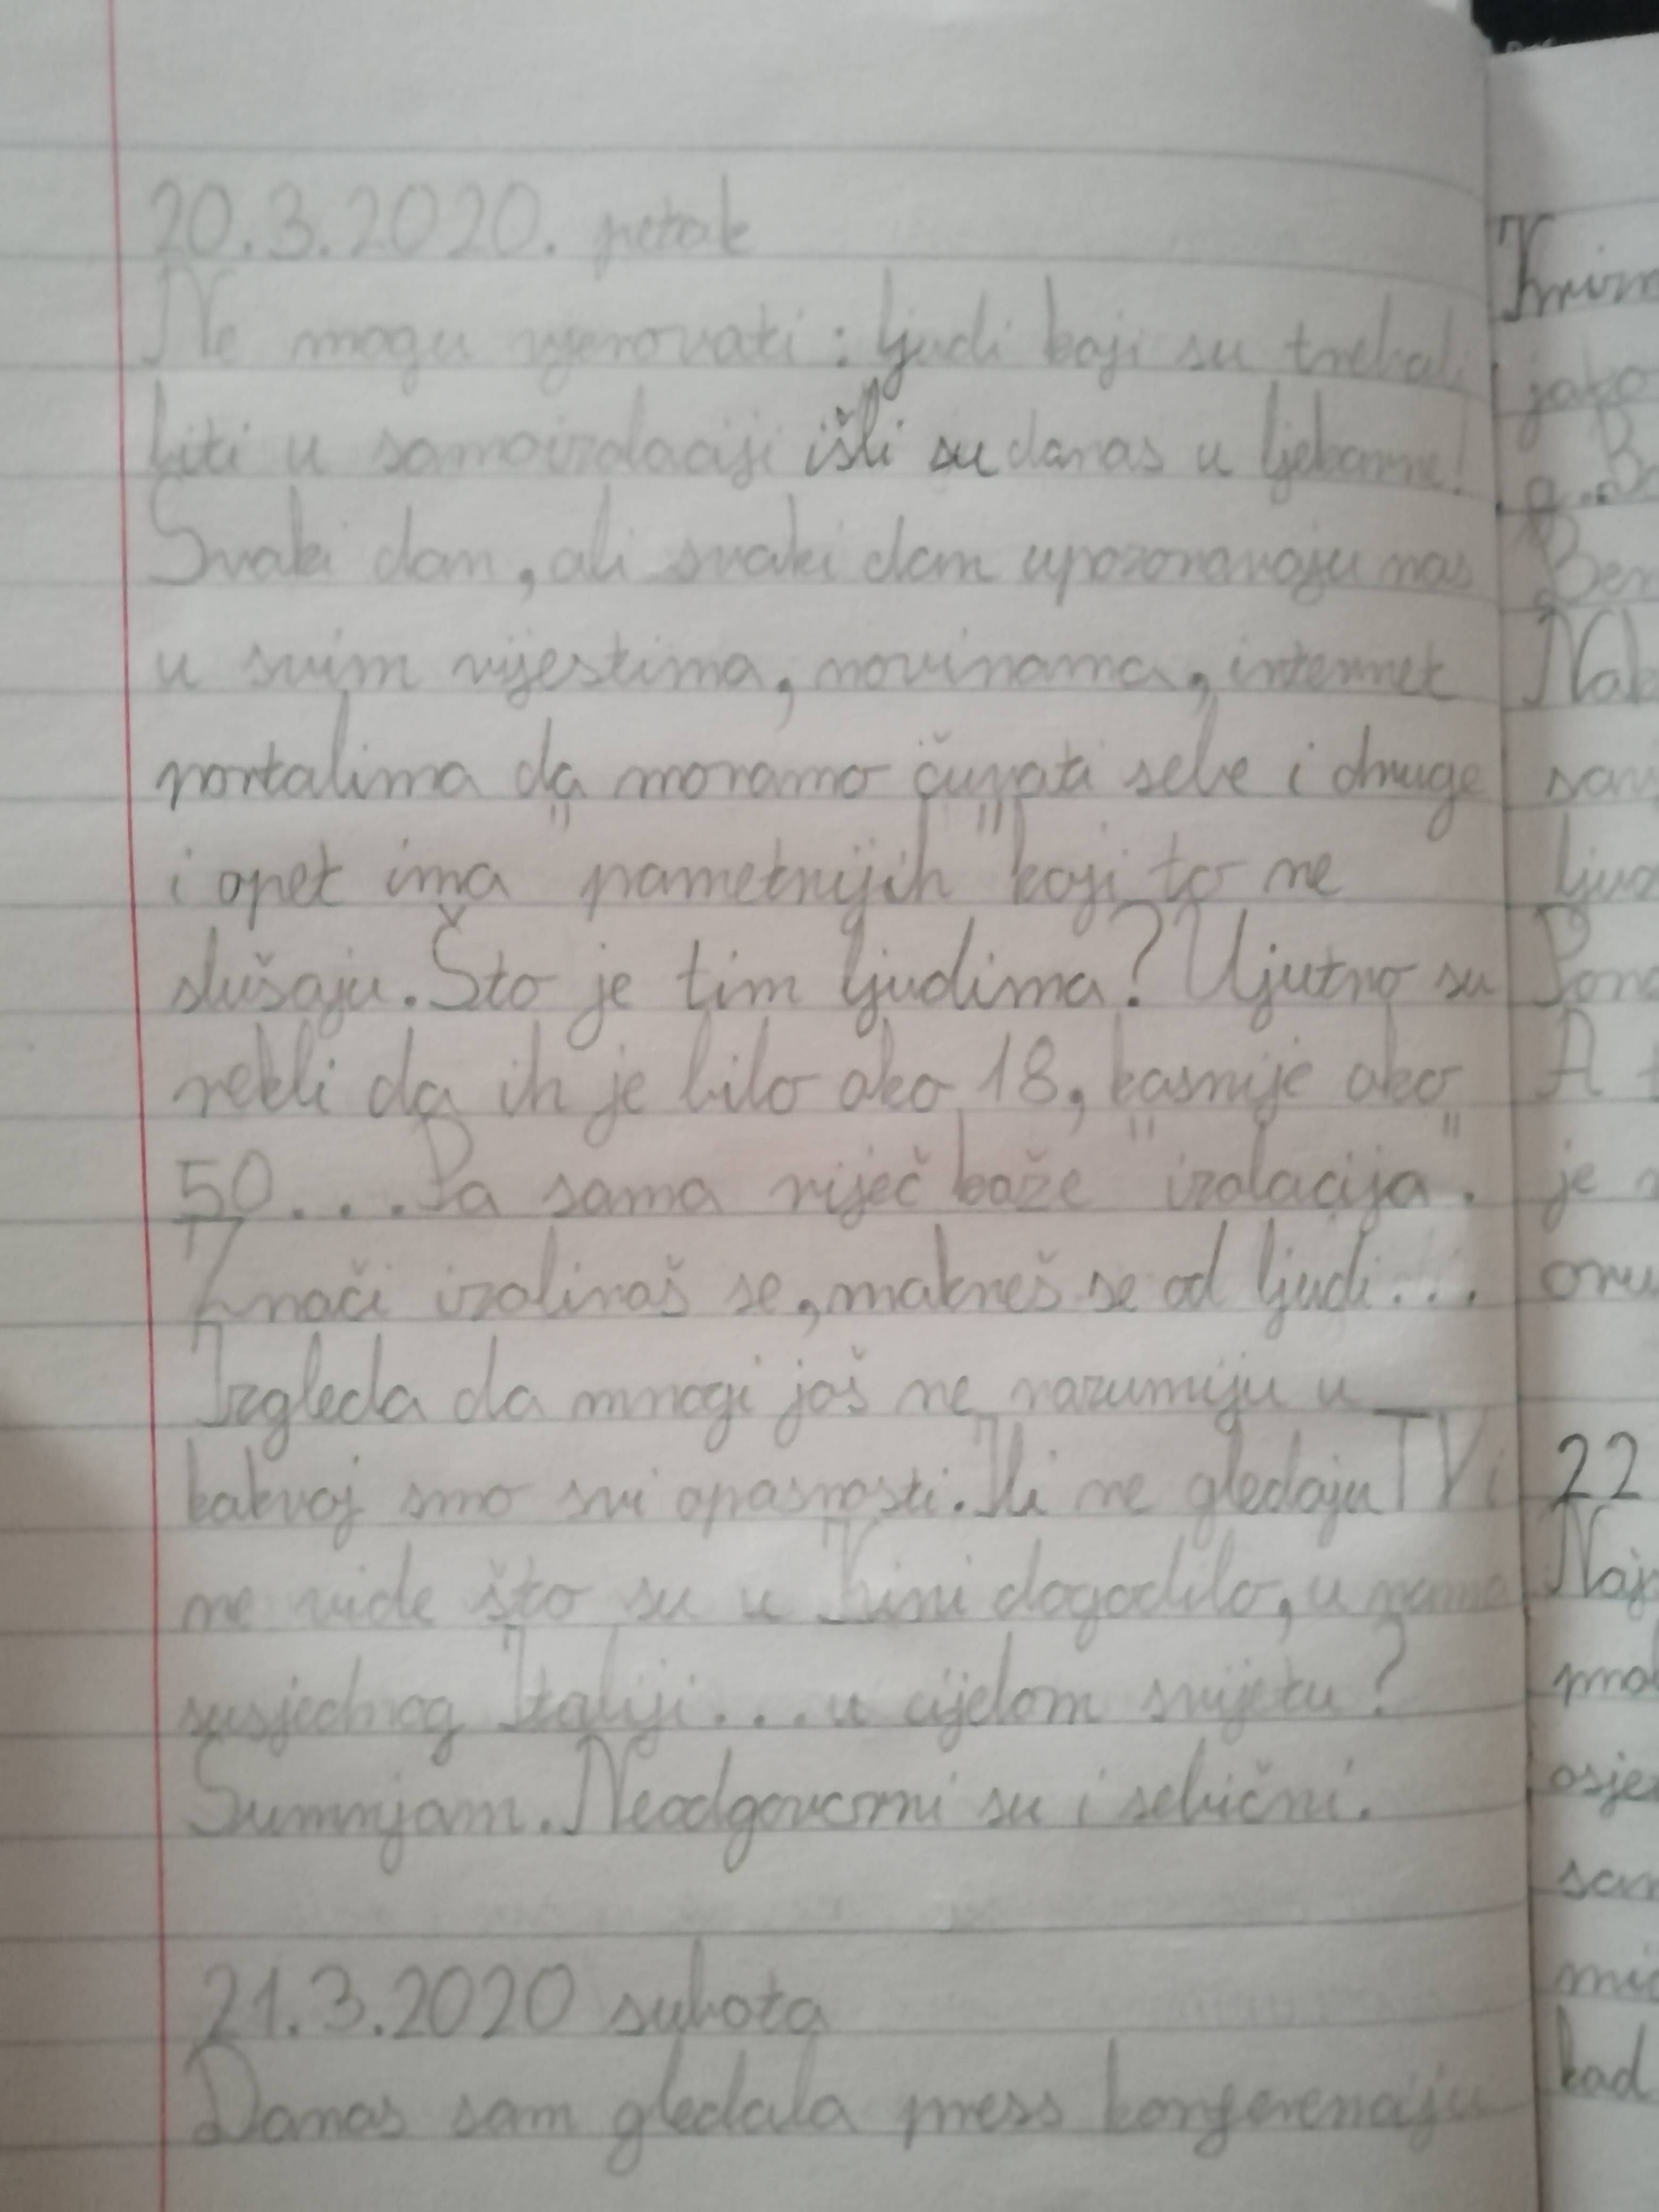 20.3.2020. petak
Ne mogu vjerovati: ljudi koji su trebali
biti u samoizolaciji išli su danas u ljekarne!
Svaki dan, ali svaki dan upozoravaju nas
u svim vijestima, novinama, internet
portalima da moramo čuvati sebe i druge
i opet ima "pametnijih" koji to ne
slušaju. Što je tim ljudima? Ujutro su
rekli da ih je bilo oko 18, kasnije oko
50... Pa sama riječ kaže "izolacija".
Znači izoliraš se, makneš se od ljudi...
Izgleda da mnogi još ne razumiju u
kakvoj smo svi opasnosti. Ili ne gledaju TV i
ne vide što su u Kini dogodilo, u nama
susjednog Italiji... u cijelom svijetu?
Sumnjam. Neodgovorni su i sebični.
21.3.2020 subota
Danas sam gledala press konferenciju
jako
22
je
kad